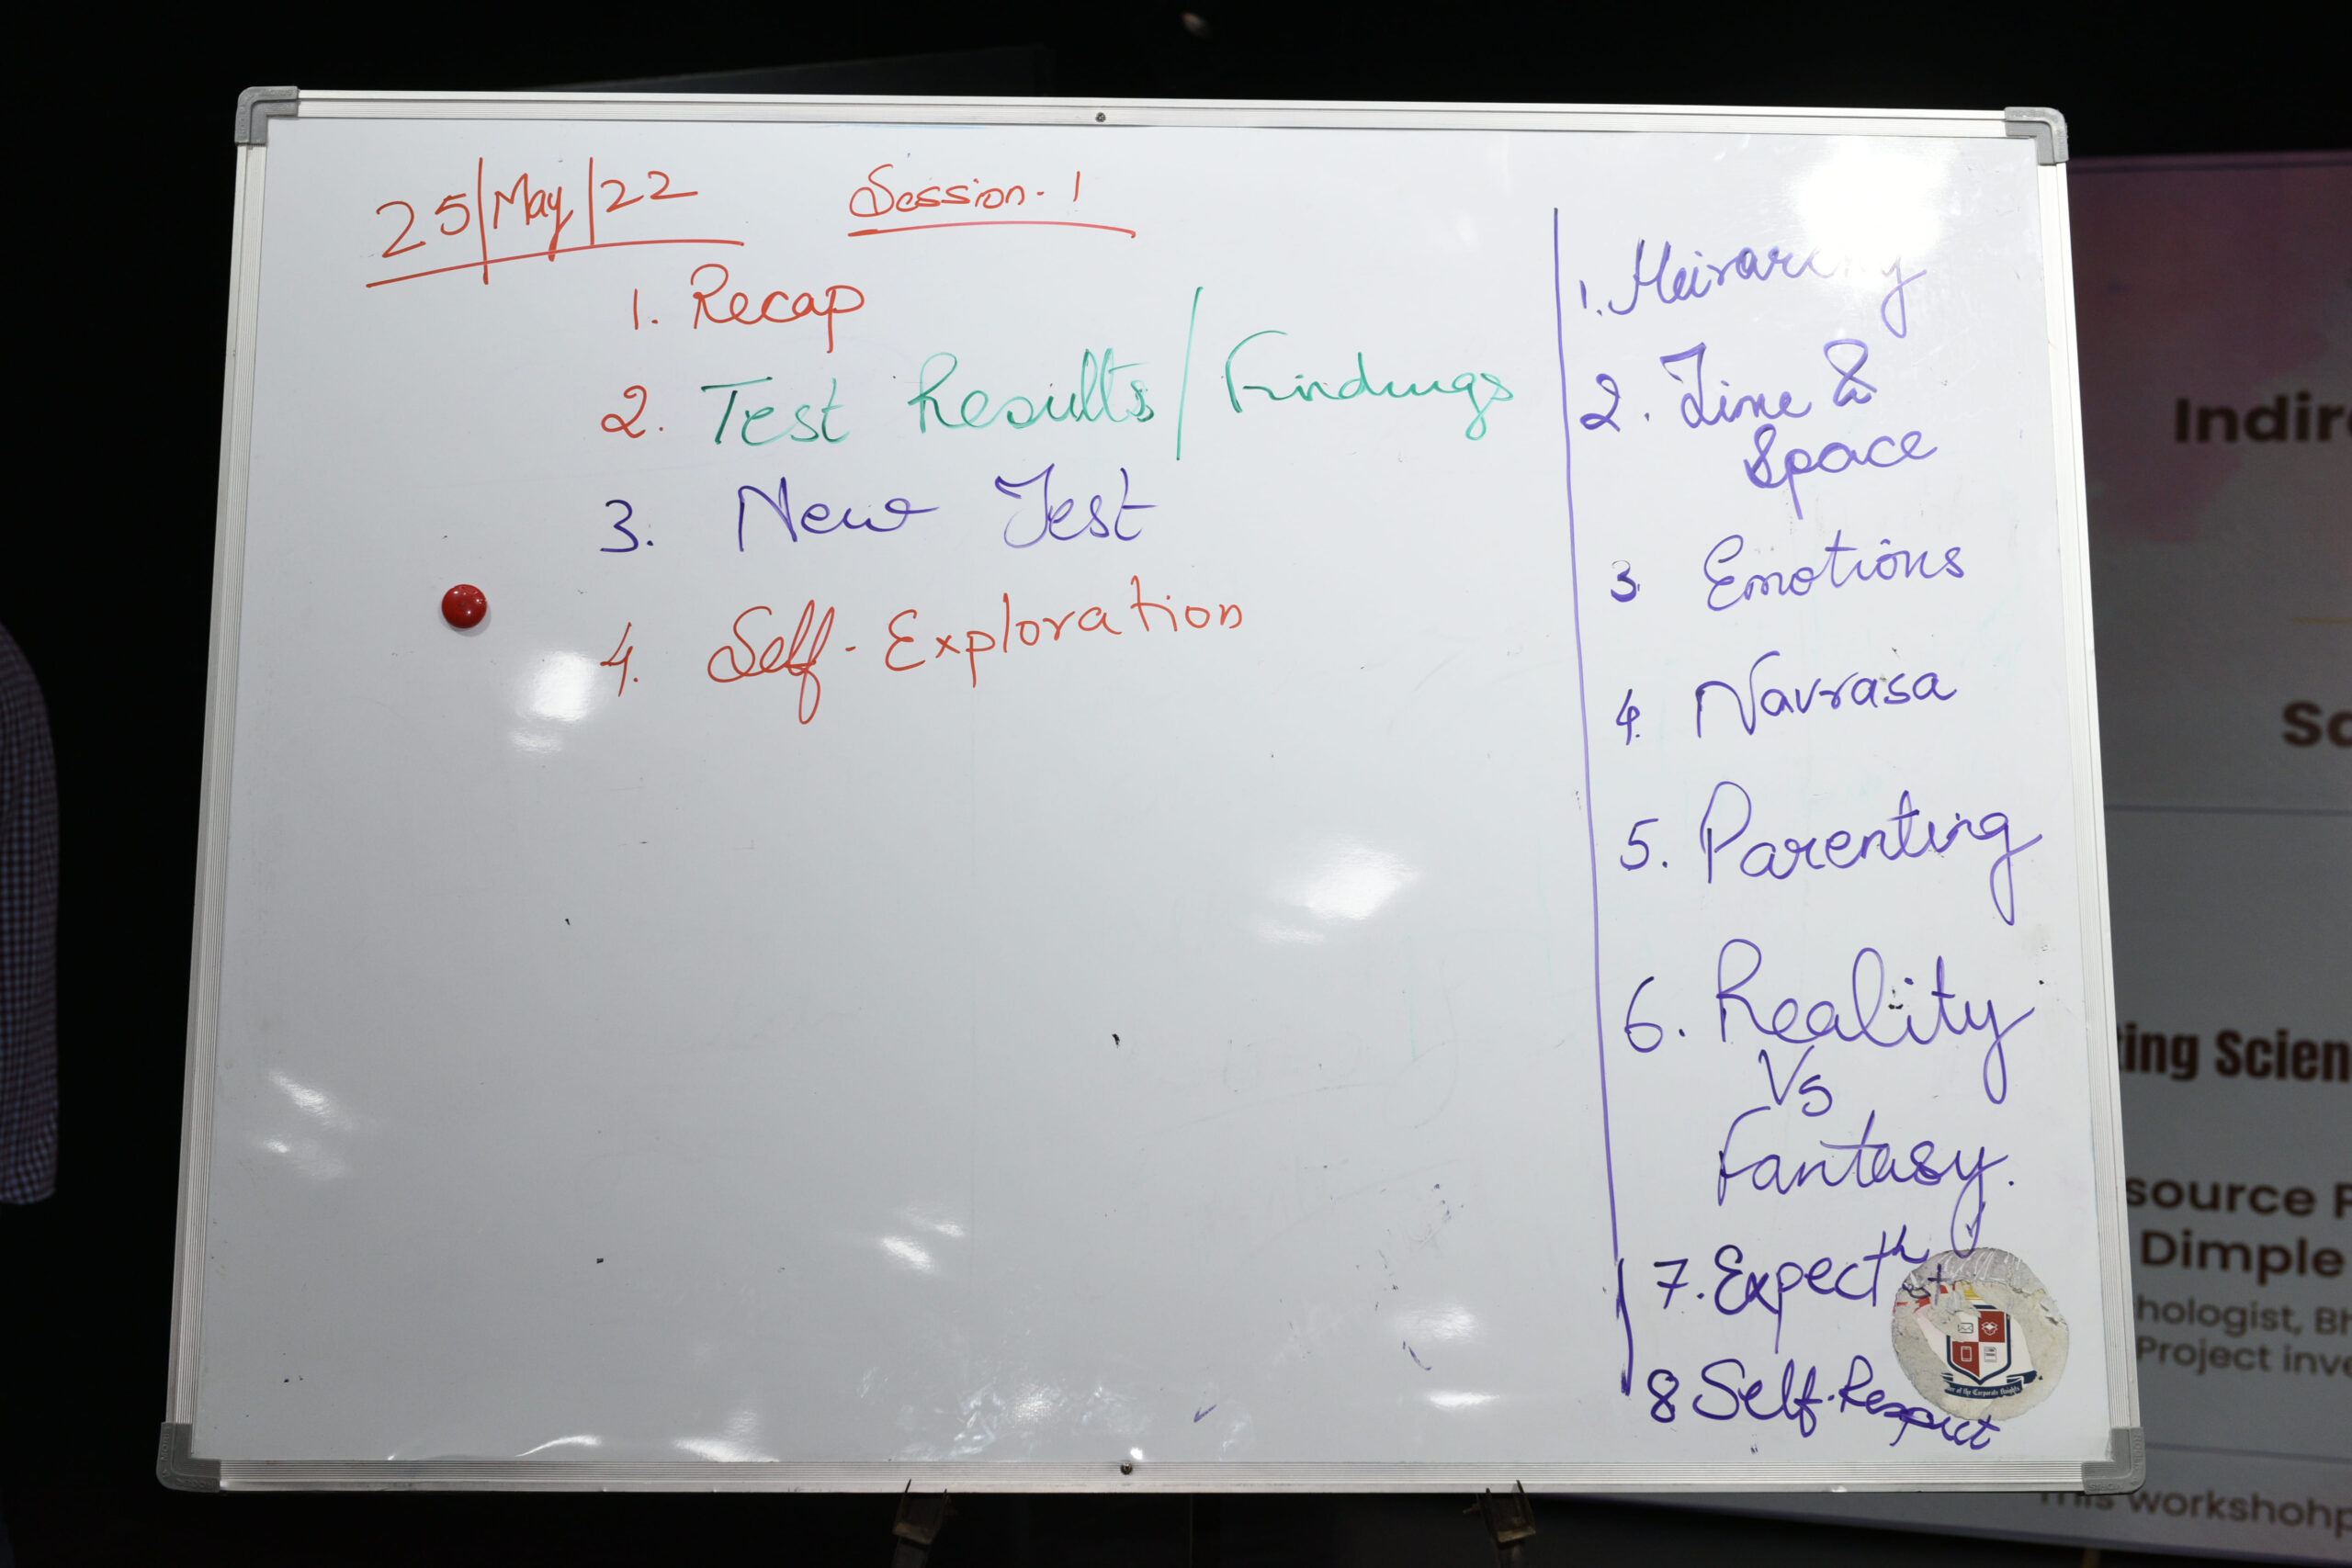 25/May/22 Session-1
1. Recap
2. Test Results/Findings
3. New Test
4. Self-Exploration
1. Heirarchy
2. Time &
Space
3. Emotions
4. Navrasa
5. Parenting
6. Reality
Vs
Fantasy.
7. Expect
8 Self-Respect
of the Corporate Knights
Indir
So
ing Scien
source P
Dimple
hologist, Bh
Project inve
This workshohp